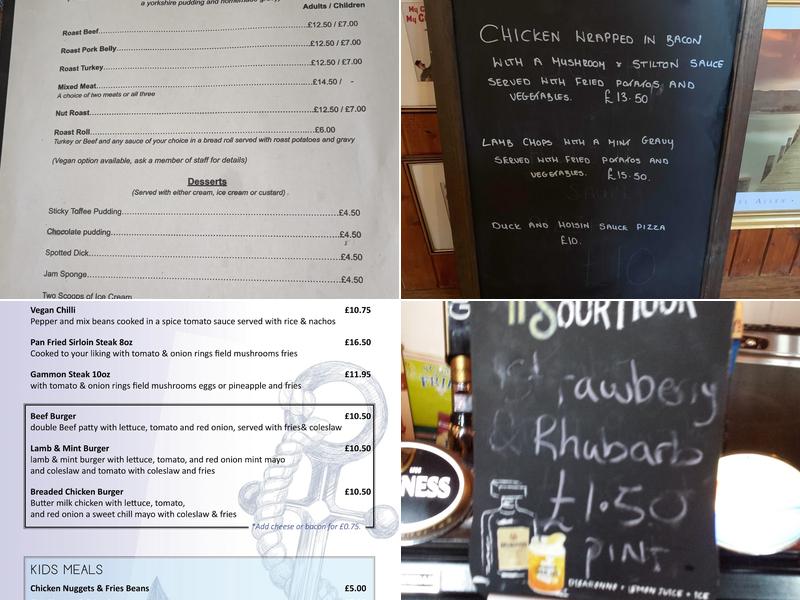 a yorkshire pudding and homemade gravy)
Adults / Children
Roast Beef...£12.50 / £7.00
Roast Pork Belly...£12.50 / £7.00
Roast Turkey...£12.50 / £7.00
Mixed Meat...£14.50 / -
A choice of two meats or all three
Nut Roast...£12.50 / £7.00
Roast Roll...£6.00
Turkey or Beef and any sauce of your choice in a bread roll served with roast potatoes and gravy
(Vegan option available, ask a member of staff for details)
Desserts
(Served with either cream, ice cream or custard) .
Sticky Toffee Pudding...£4.50
Chocolate pudding...£4.50
Spotted Dick...£4.50
Jam Sponge...£4.50
Two Scoops of Ice Cream
CHICKEN WRAPPED IN BACON
WITH A MUSHROOM & STILTON SAUCE
SERVED WITH FRIED POTATOS AND
VEGETABLES. £13.50
LAMB CHOPS WITH A MINT GRAVY
SERVED WITH FRIED POTATOS AND
VEGETABLES. £15.50.
DUCK AND HOISIN SAUCE PIZZA
£10.
Vegan Chilli £10.75
Pepper and mix beans cooked in a spice tomato sauce served with rice & nachos
Pan Fried Sirloin Steak 8oz £16.50
Cooked to your liking with tomato & onion rings field mushrooms fries
Gammon Steak 10oz £11.95
with tomato & onion rings field mushrooms eggs or pineapple and fries
Beef Burger £10.50
double Beef patty with lettuce, tomato and red onion, served with fries& coleslaw
Lamb & Mint Burger £10.50
lamb & mint burger with lettuce, tomato, and red onion mint mayo
and coleslaw and tomato with coleslaw and fries
Breaded Chicken Burger £10.50
Butter milk chicken with lettuce, tomato,
and red onion a sweet chill mayo with coleslaw & fries
*Add cheese or bacon for £0.75.
KIDS MEALS
Chicken Nuggets & Fries Beans £5.00
Strawberry
& Rhubarb
£1.50
PINT
DISARANNO + LEMON JUICE + ICE
NESS